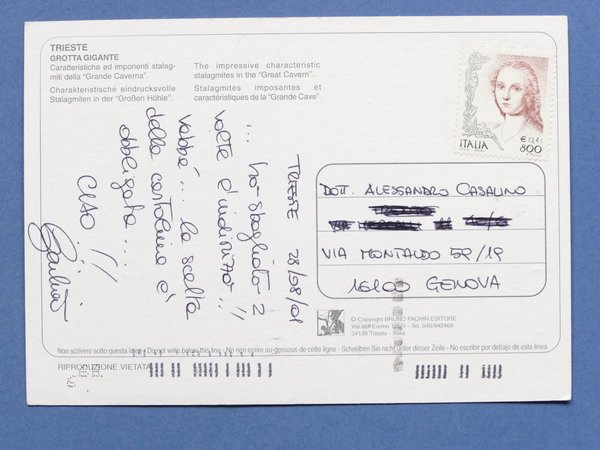 TRIESTE
GROTTA GIGANTE
Caratteristiche ed imponenti stalag-
miti della "Grande Caverna".
Charakteristische eindrucksvolle
Stalagmiten in der "Großen Höhle".
The impressive characteristic
stalagmites in the "Great Cavern".
Stalagmites imposantes et
caractéristiques de la "Grande Cave".
ITALIA
800
TRIESTE 28/08/01
... ho sbagliato 2
volte l'indirizzo!!
vabbé... la scelta
della cartolina è
obbligata...
CIAO!!
DOTT. ALESSANDRO CASALINO
VIA MONTALDO 59/19
16100 GENOVA
© Copyright BRUNO FACHIN EDITORE
Via dell'Eremo - Tel. 040/942468
34139 Trieste - Italia
Non scrivere sotto questa linea - Do not write below this line - Ne non ecrire au-dessous de cette ligne - Schreiben Sie nicht unter dieser Zeile - No escribir por debajo de esta línea
RIPRODUZIONE VIETATA